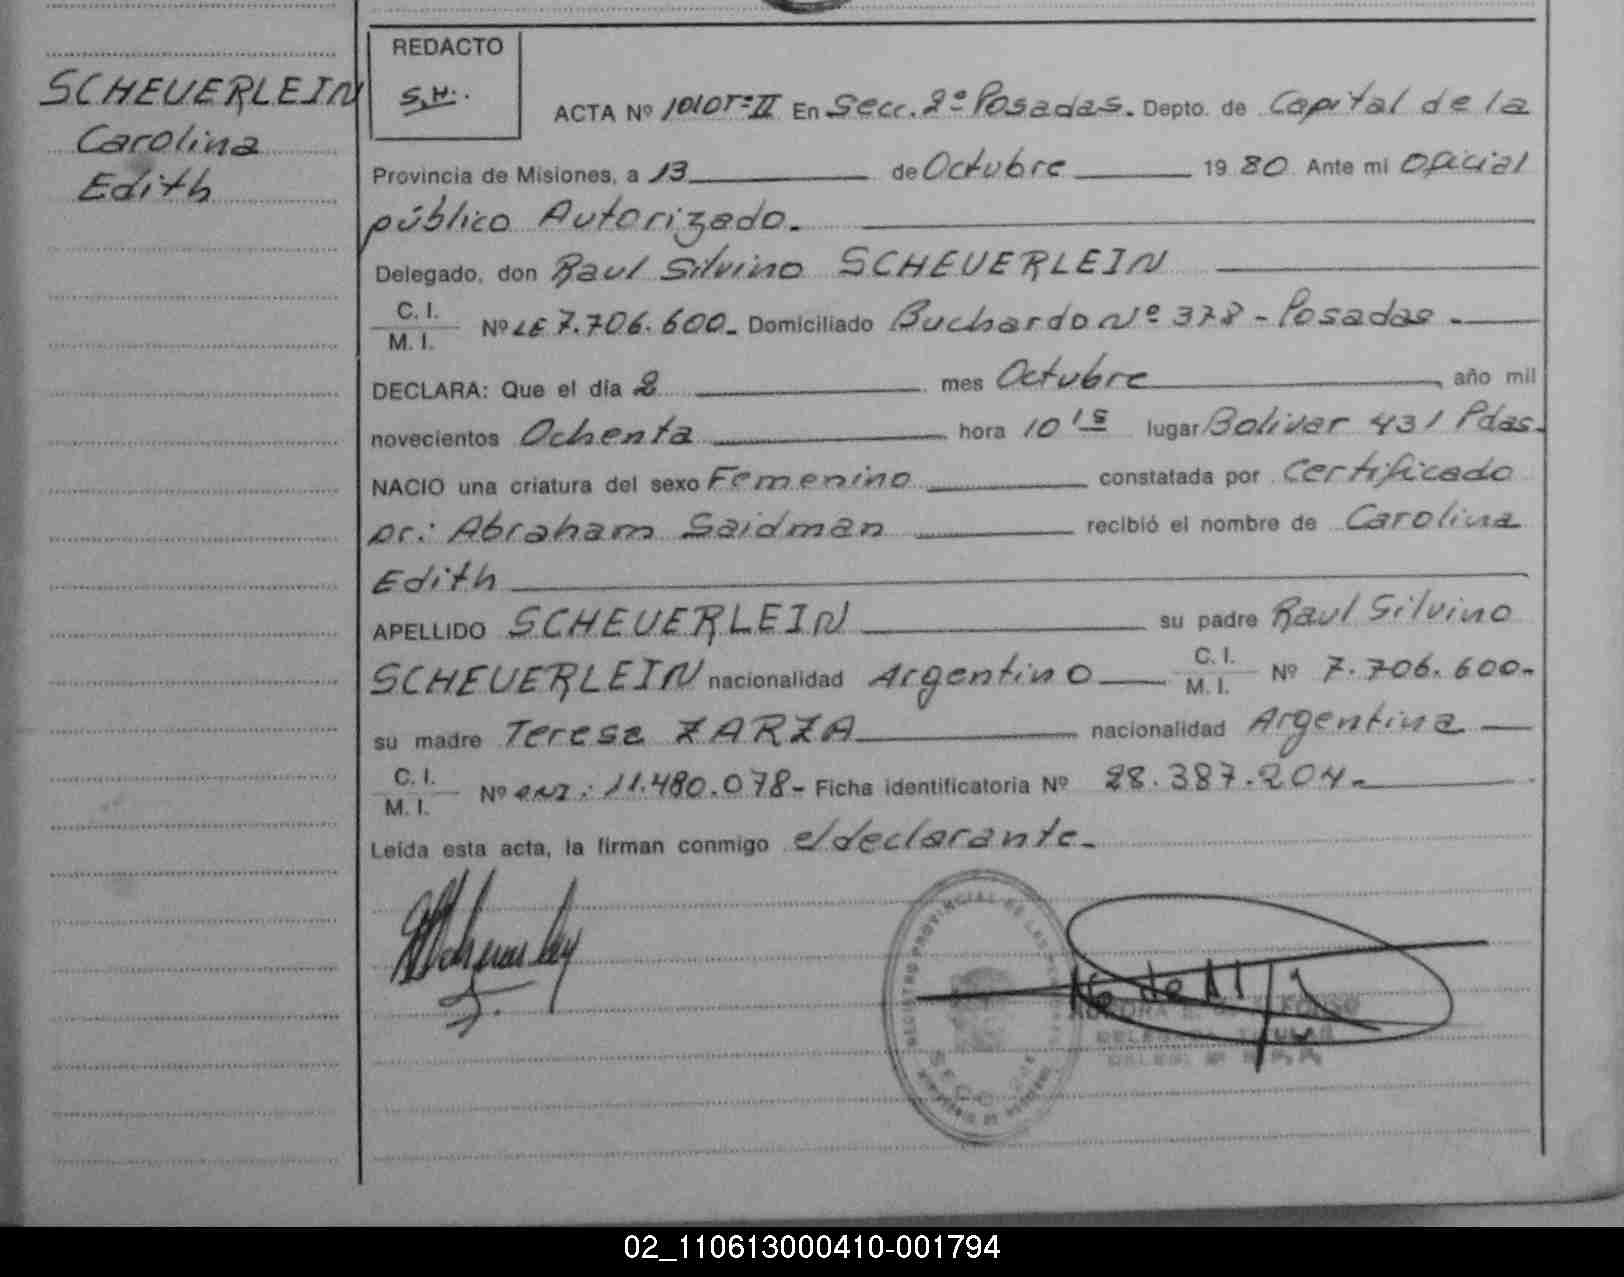 SCHEUERLEIN
Carolina
Edith
REDACTO
S.H.
ACTA Nº 1010Tº II En Secc. 2º Posadas. Depto. de Capital de la
Provincia de Misiones, a 13 de Octubre 19 80 Ante mi Oficial
público Autorizado.
Delegado, don Raul Silvino SCHEUERLEIN
C. I.
M. I. Nº LE 7.706.600. Domiciliado Buchardo Nº 378 - Posadas.
DECLARA: Que el día 2 mes Octubre, año mil
novecientos Ochenta hora 10 15 lugar Bolivar 431 Pdas.
NACIO una criatura del sexo Femenino constatada por Certificado
Dr.: Abraham Saidman recibió el nombre de Carolina
Edith
APELLIDO SCHEUERLEIN su padre Raul Silvino
SCHEUERLEIN nacionalidad Argentino C. I. M. I. Nº 7.706.600.
su madre Teresa ZARZA nacionalidad Argentina
C. I.
M. I. Nº DNI: 11.480.078- Ficha identificatoria Nº 28.387.204.
Leída esta acta, la firman conmigo el declarante.
REGISTRO PROVINCIAL DE LAS
02_110613000410-001794